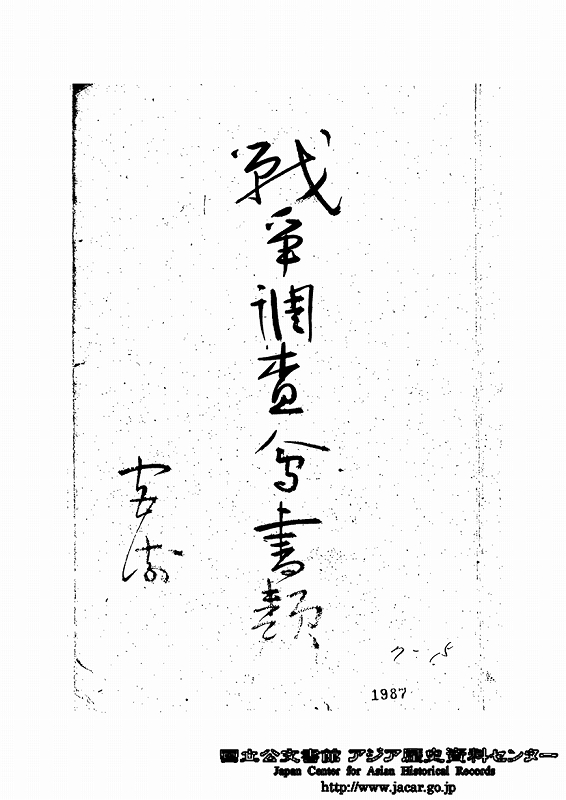 戦争調査会書類
1987
国立公文書館 アジア歴史資料センター
Japan Center for Asian Historical Records
http://www.jacar.go.jp